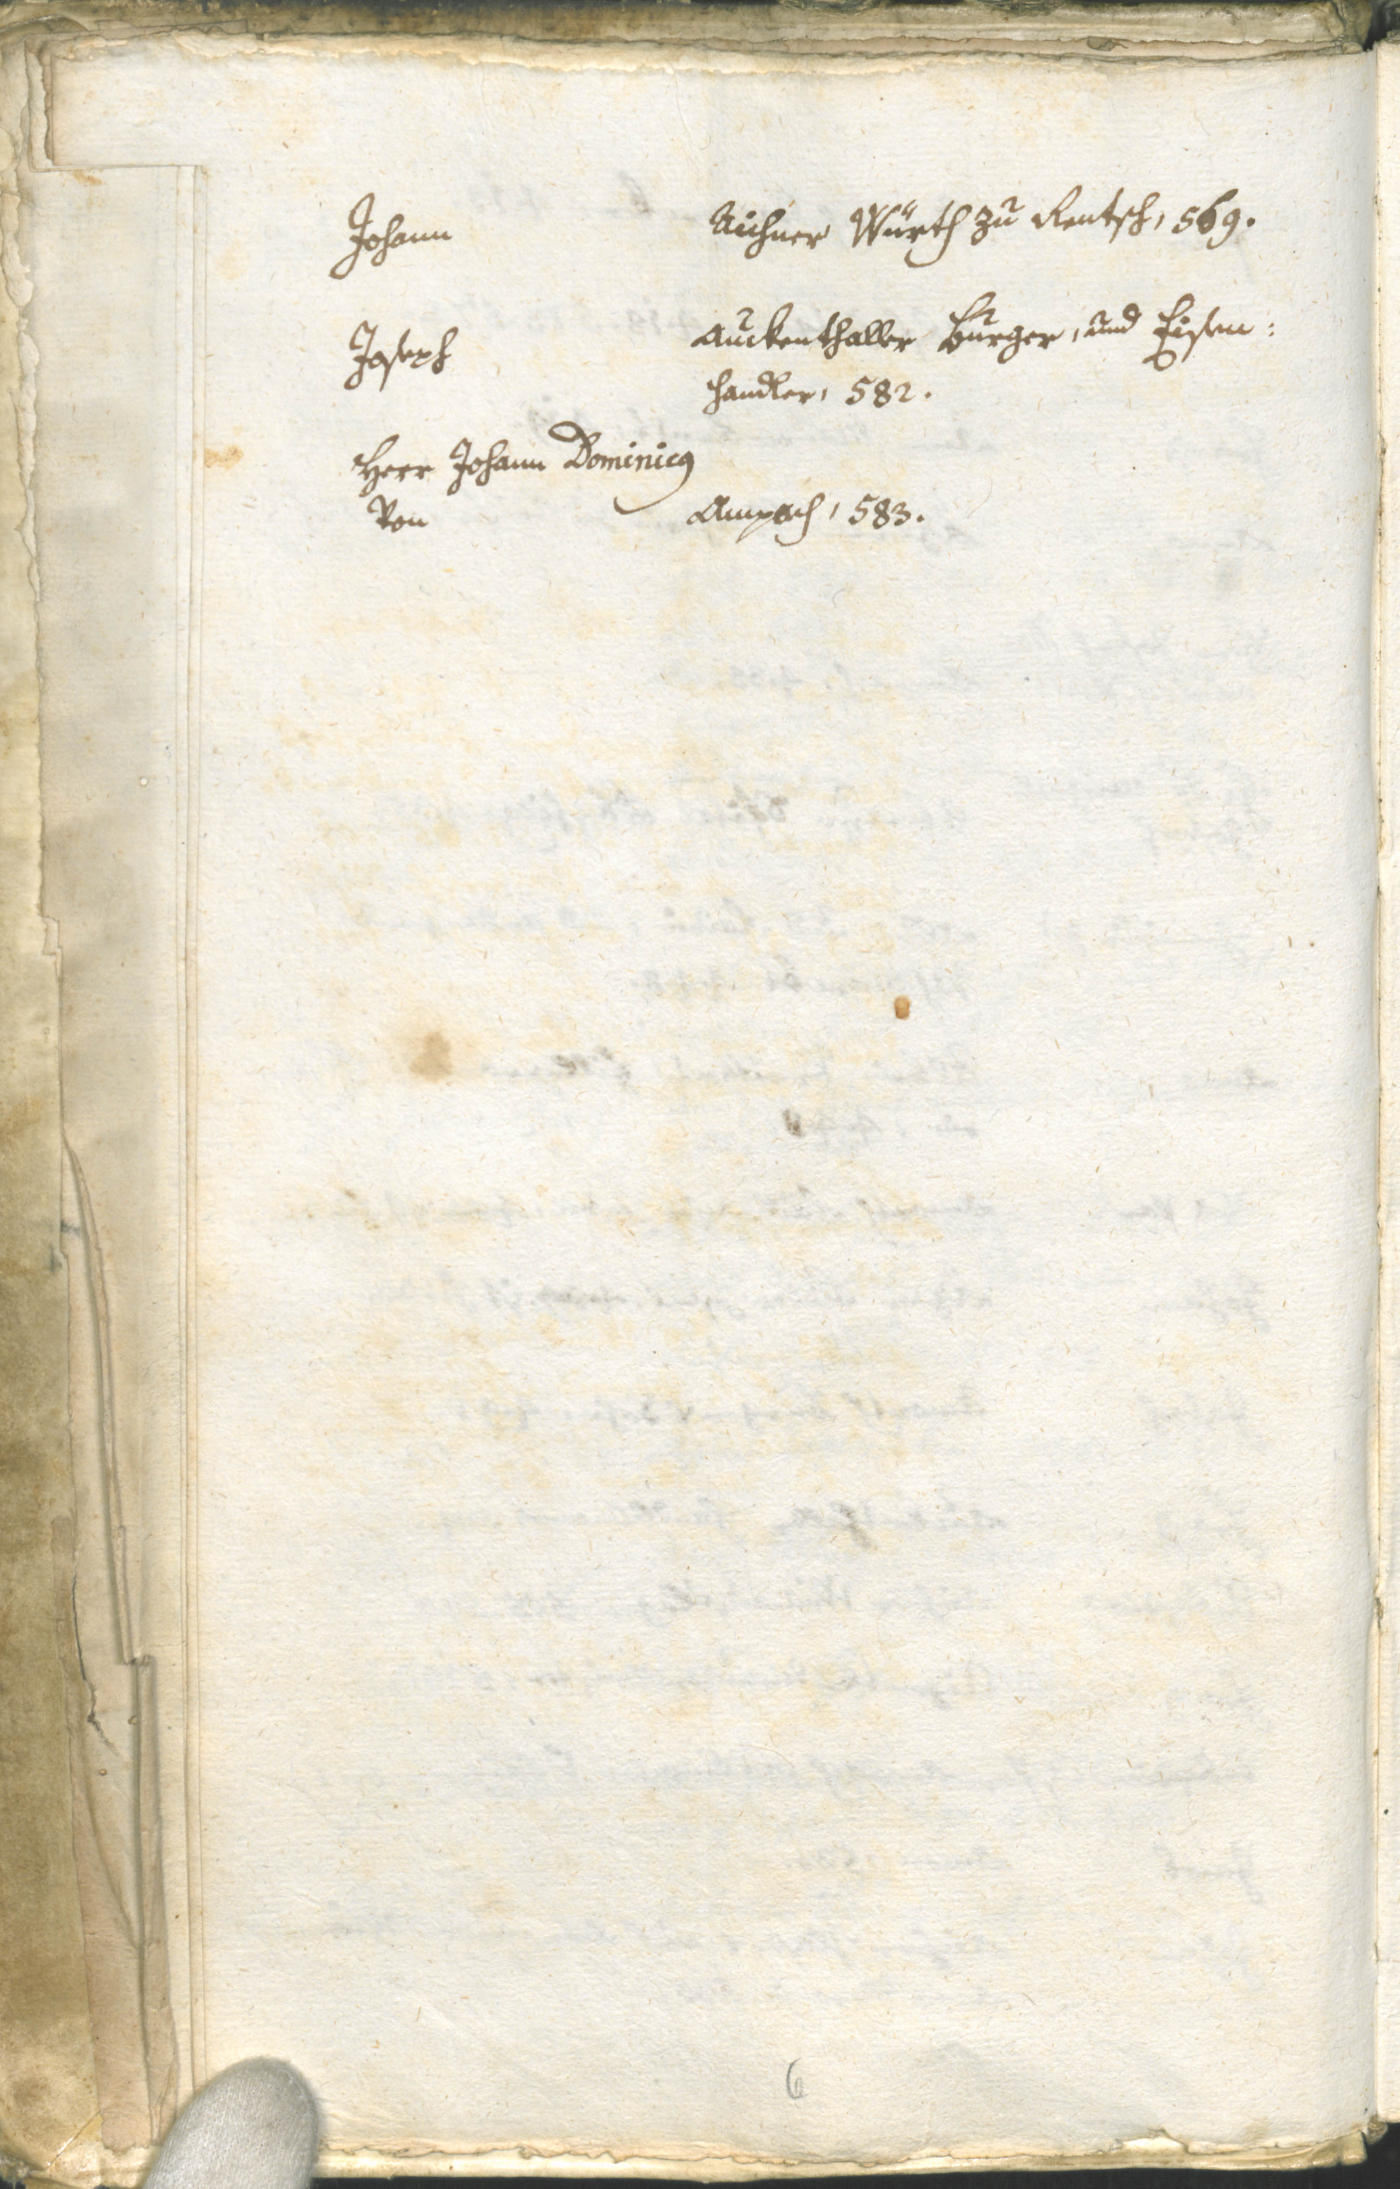 Johann Aichner Würth zu Rentsch, 569.
Joseph Auckenthaller Burger, und Eisen:
handler, 582.
Herr Johann Dominicus
Von Ampach, 583.
6